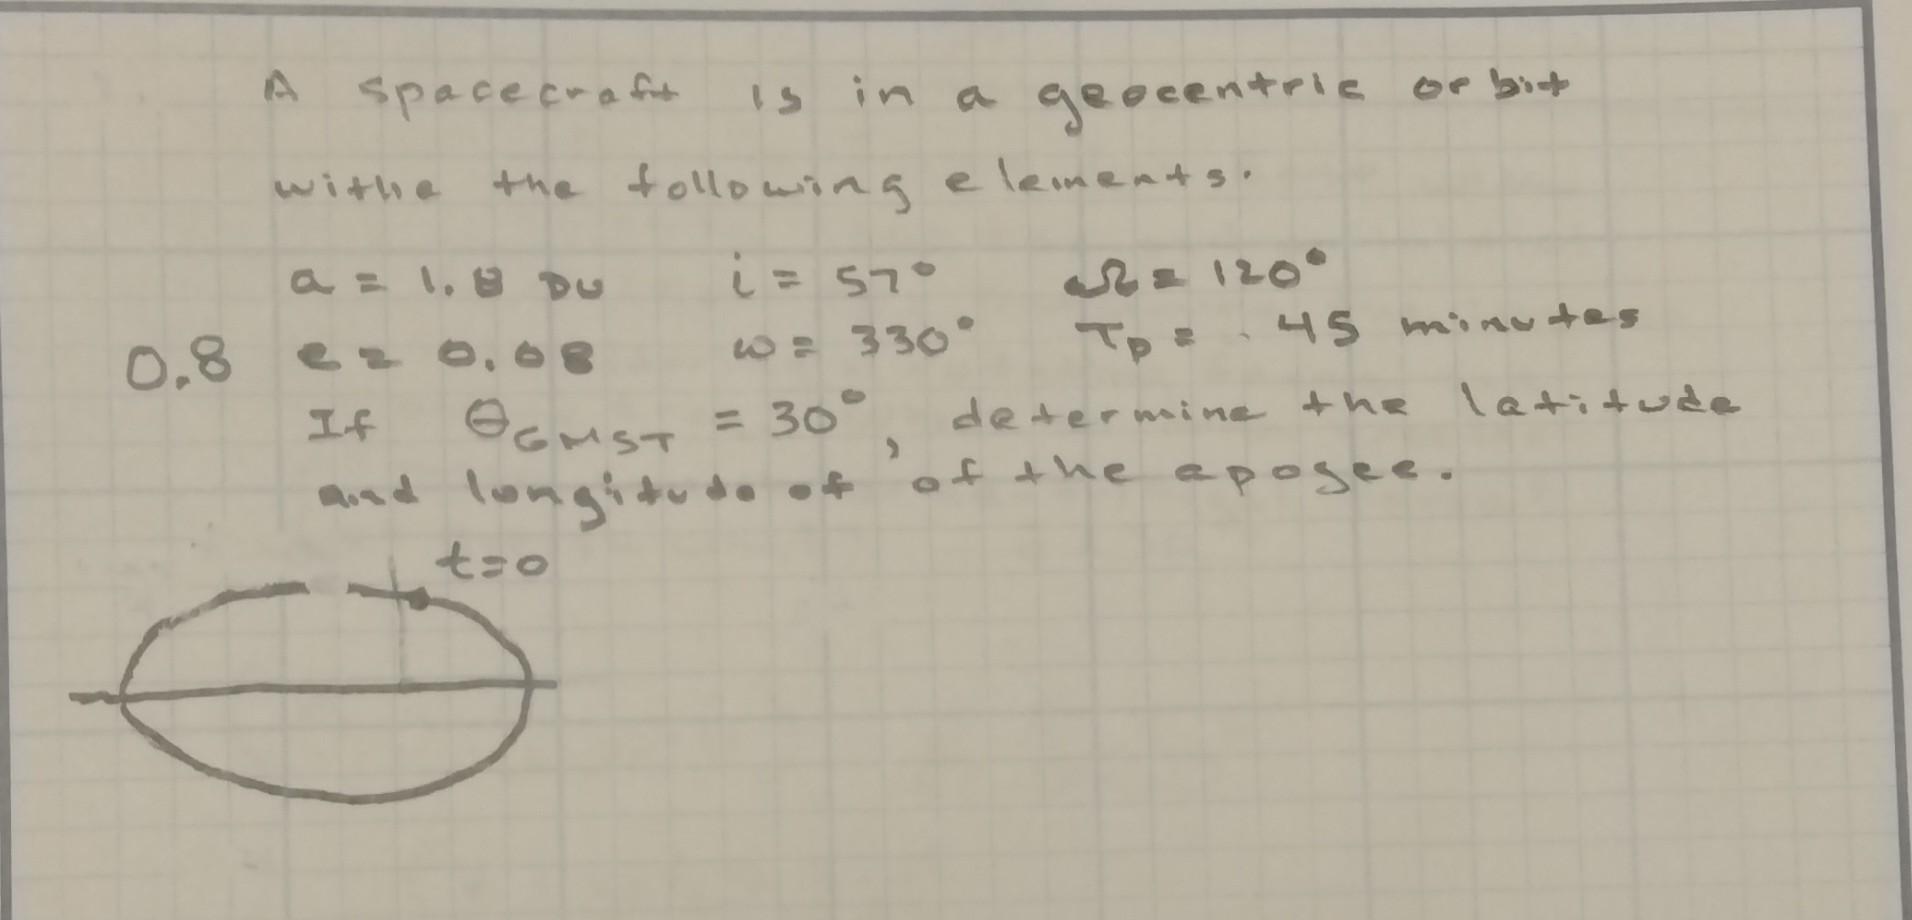 A spacecraft is in a geocentric orbit
withe the following elements.
a = 1.8 DU i = 57° Ω = 120°
0.8 e = 0.08 ω = 330° Tp = 45 minutes
If θGMST = 30°, determine the latitude
and longitude of of the apogee.
t=0